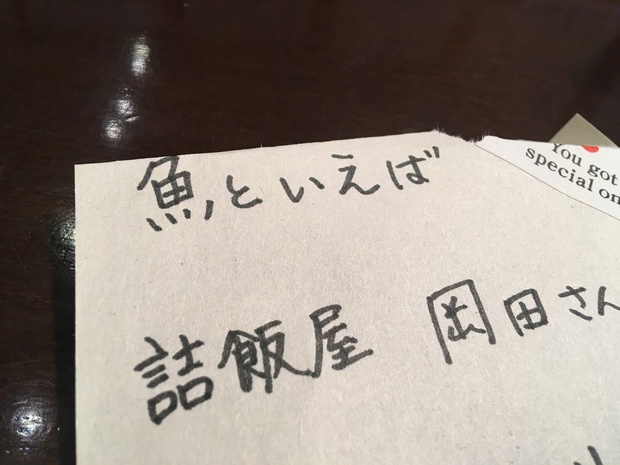 魚といえば
You got
special on
詰飯屋 岡田さん